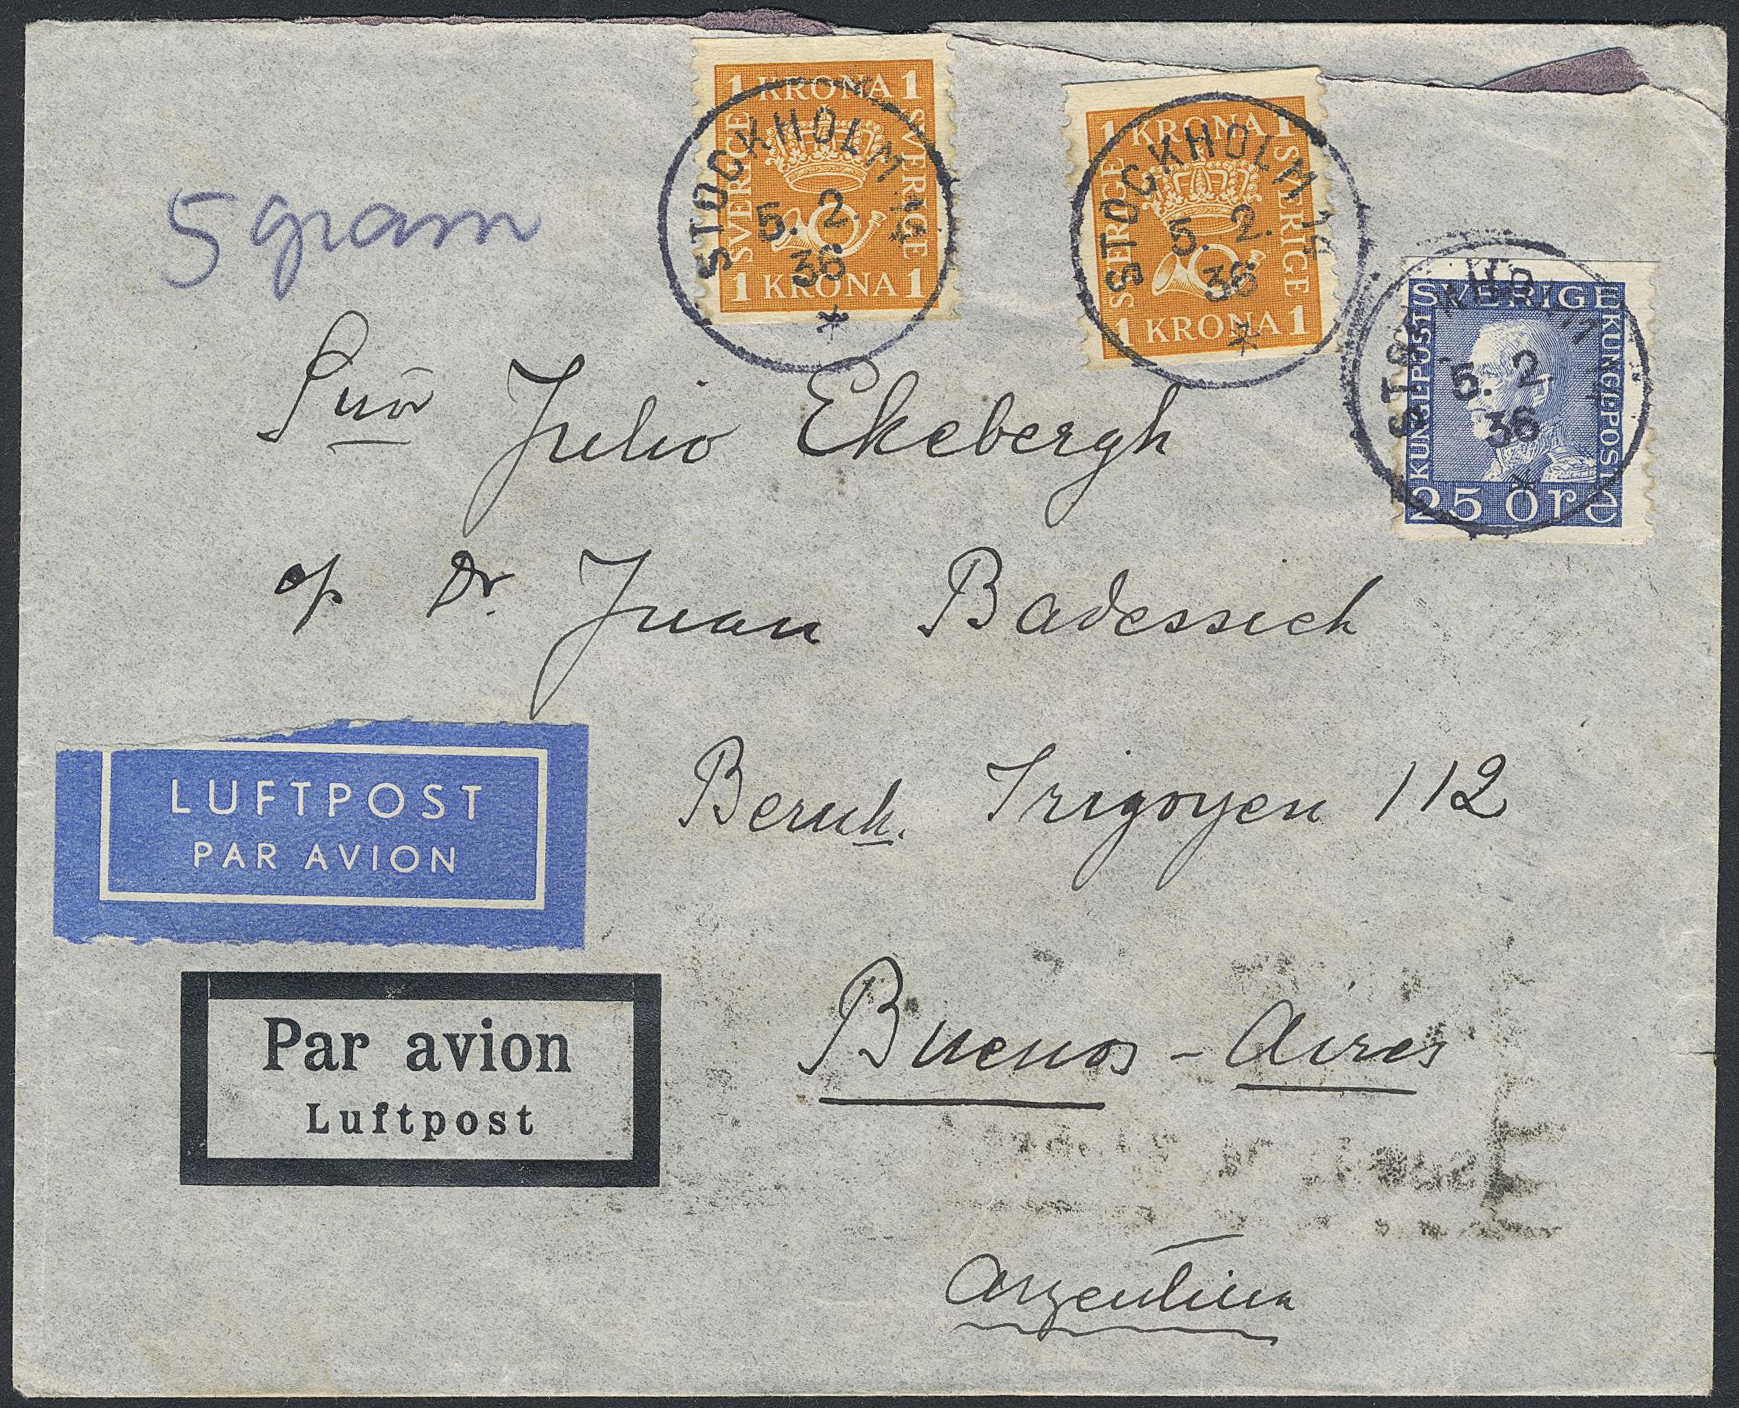 1 KRONA 1
SVERIGE
SVERIGE
1 KRONA 1
STOCKHOLM
5. 2.
36
*
1 KRONA 1
SVERIGE
SVERIGE
1 KRONA 1
STOCKHOLM 15
5. 2.
36
*
SVERIGE
KUNGL POST
KUNGL POST
25 ÖRE
5. 2
36
*
5 gram
Snr Julio Ekebergh
Dr. Juan Badessich
LUFTPOST
PAR AVION
Bernh. Irigoyen 112
Par avion
Luftpost
Buenos - Aires
Argentina